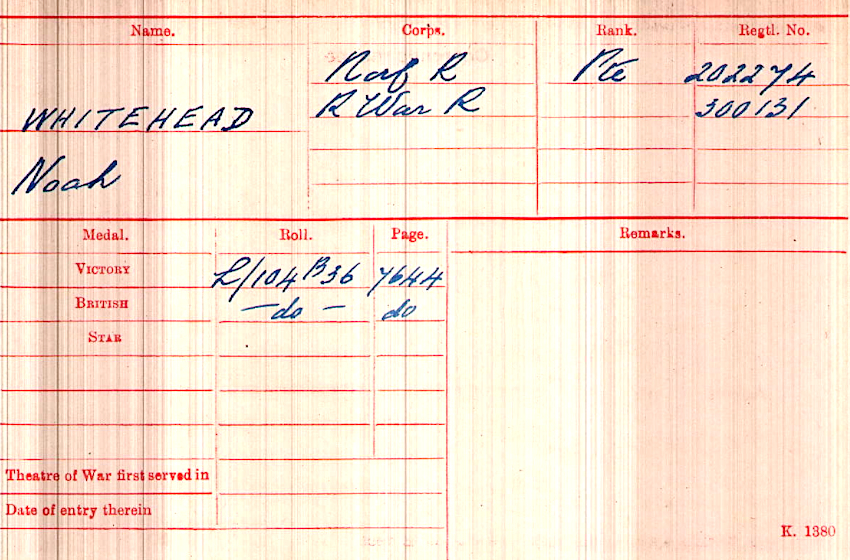 Name. Corps. Rank. Regtl. No.
Norf R Pte 202274
WHITEHEAD R War R 300131
Noah
Medal. Roll. Page. Remarks.
VICTORY L/104 B36 7644
BRITISH — do — do
STAR
Theatre of War first served in
Date of entry therein
K. 1380